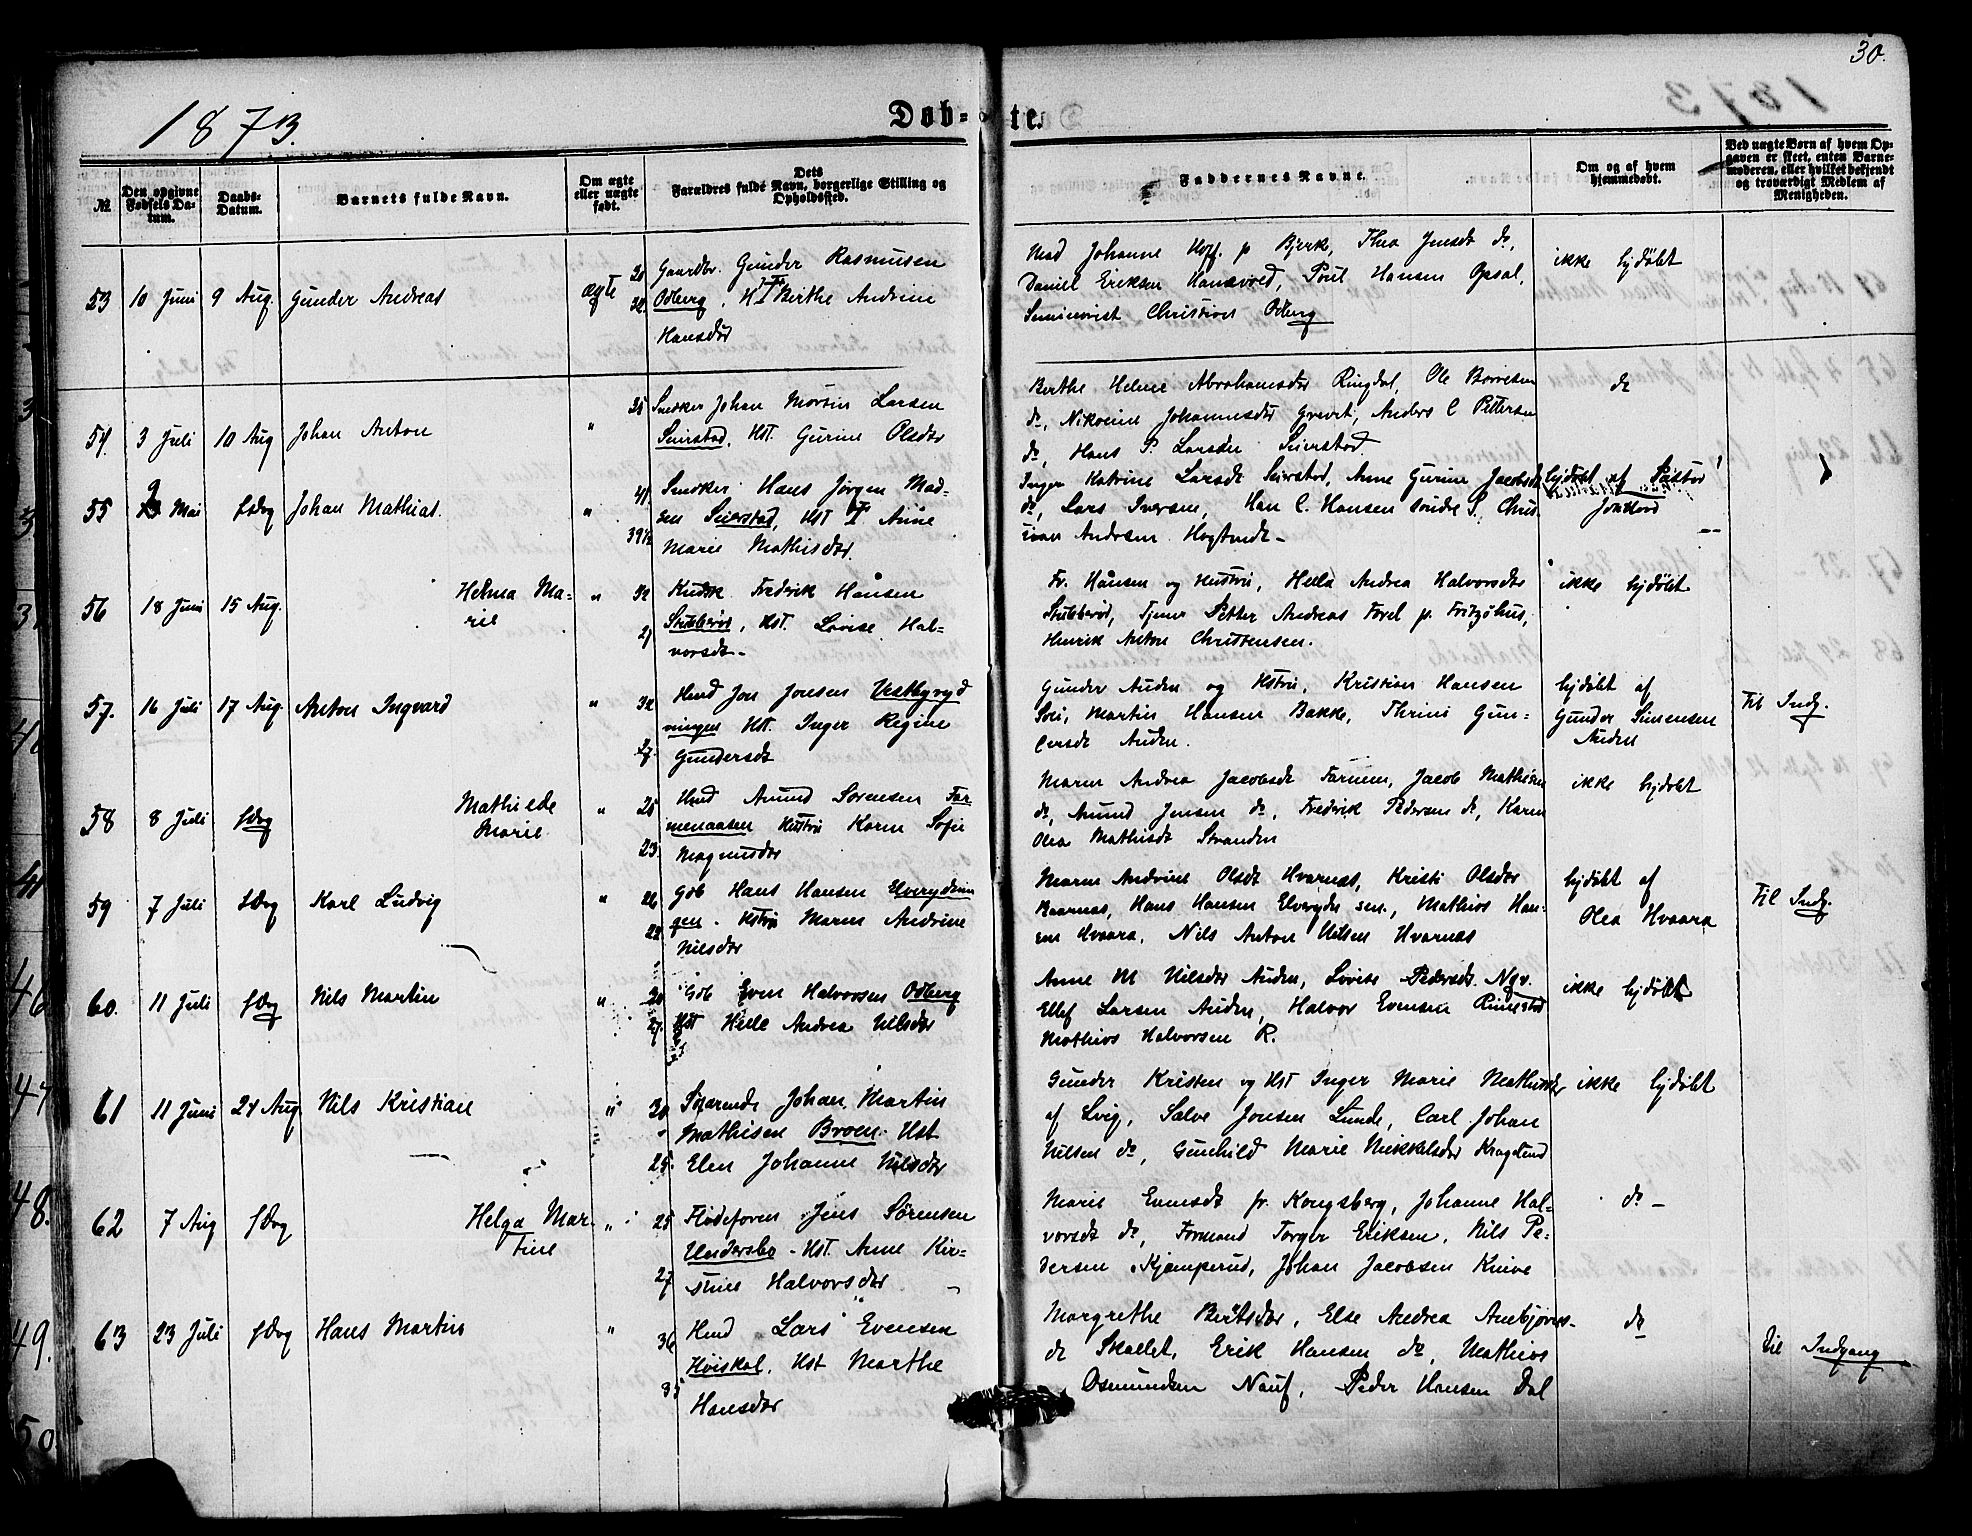 30.
1873.
Døb-te.
№
Den opgivne Fødsels Datum.
Daabs-Datum.
Barnets fulde Navn.
Om ægte eller uægte født.
Dets Forældres fulde Navn, borgerlige Stilling og Opholdssted.
Faddernes Navne.
Om og af hvem hjemmedøbt.
Ved uægte Børn af hvem Opgaven er skeet, enten Barnemoderen, eller hvilket bekjendt og troværdigt Medlem af Menigheden.
53 10 Juni 9 Aug. Gunder Andreas ægte
Gaardbr. Gunder Rasmusen
Odberg, H Berthe Andrine
Hansdtr
Mad Johanne Hoff p Bjerk, Thea Jensdt do,
Daniel Eriksen Hansvold, Poul Hansen Opsal,
Seminarist Christian Odberg
ikke hjdøbt
54. 3 Juli 10 Aug Johan Anton "
25 Snedker Johan Morten Larsen
Seierstad, Hst. Gurine Olsdtr
Berthe Helene Abrahamsdtr Ringdal, Ole Borresen
do, Nikoline Johannesdtr Grevet, Anders C Pettersen
do, Hans P. Larsen Seierstad
do
55 Mai Johan Mathias. "
41 Snedker Hans Jørgen Mad-
sen Seierstad, Hst Anne
39½ Marie Mathisdtr.
Inger Katrine Larsdt Seierstad, Anne Gurine Jacobsdt
do, Lars Iversen, Han C. Hansen Søndre S, Chris
tian Andersen Hogtvedt
hjdøbt af Pastor
56 18 Juni 15 Aug. Helma Ma-
rie "
32 Kudsk Fredrik Hansen
Stubberød, Hst. Lovise Hal-
vorsdt-
Fr. Hansen og Hustru, Helle Andrea Halvorsdtr
Stubberød, Tjener Petter Andreas Forel p. Fritzøhus,
Henrik Anton Christensen.
ikke hjdøbt
57. 16 Juli 17 Aug. Anton Ingvard "
32 Hmd Jon Jonsen Vestbyryd
ningen Hst. Inger Regine
27. Gundersdt
Gunder Auden og Hstru, Kristian Hansen
Soei, Martin Hansen Bakke, Thrine Gun-
dersdt Auden.
hjdøbt af
Gunder Simensen
Auden
Til Indg.
58 8 Juli Mathilde
Marie "
25 Hmd Amund Sørensen Far-
menaasen Hustru Karen Sofie
23. Magnusdtr
Maren Andrea Jacobsdt Farmen, Jacob Mathisen
do, Amund Jensen do, Fredrik Pedersen do, Karen
Olea Mathisdt Stranden
ikke hjdøbt
59 7 Juli Karl Ludvig "
26 Gdb Hans Hansen Elverydnin
gen. Hstru Maren Andrine
22 Nilsdtr
Maren Andrine Olsdt Hvarnes, Kristi Olsdtr
Baarnas, Hans Hansen Elverydn sen., Mathias Han-
sen Hvaara, Nils Anton Nilsen Hvarnes
hjdøbt af
Olea Hvaara
Til Indg.
60. 11 Juli Nils Martin "
Gdb Even Halvorsen Odberg
27. Hst Helle Andrea Nilsdtr
Anne M Nilsdtr Auden, Lovise Pedersdt. Ngv.
Ellef Larsen Auden, Halvor Evensen Rimestad
Mathias Halvorsen R.
ikke hjdøbt
61 11 Juni 24 Aug Nils Kristian "
30 Søfarende Johan Martin
Mathisen Broen. Hst
25. Elen Johanne Nilsdtr
Gunder Kristen og Hst Inger Marie Mathisdtr
af Lvig, Salve Jonsen Lunde, Carl Johan
Nilsen do, Gunhild Marie Mikkelsdtr Kraglund
ikke hjdøbt
62 7 Aug Helga Mar-
tine "
25 Flødefoven Jens Sørensen
Undersbo - Hst. Anne Kir-
27 stine Halvorsdtr
Marie Evensdt pr. Kongsberg, Johanne Hal-
vorsdt do, Formand Torger Eriksen, Nils Pe-
dersen Kjæmperud, Johan Jacobsen Knive
do -
63 23 Juli Hans Martin "
36 Hmd Lars Evensen
Høiskol, Hst Marthe
35 Hansdtr
Margrethe Beritsdtr, Else Andrea Anebjørns-
dt Skallet, Erik Hansen do, Mathias
Osmundsen Nauf, Peder Hansen Dal
do
til Indgang